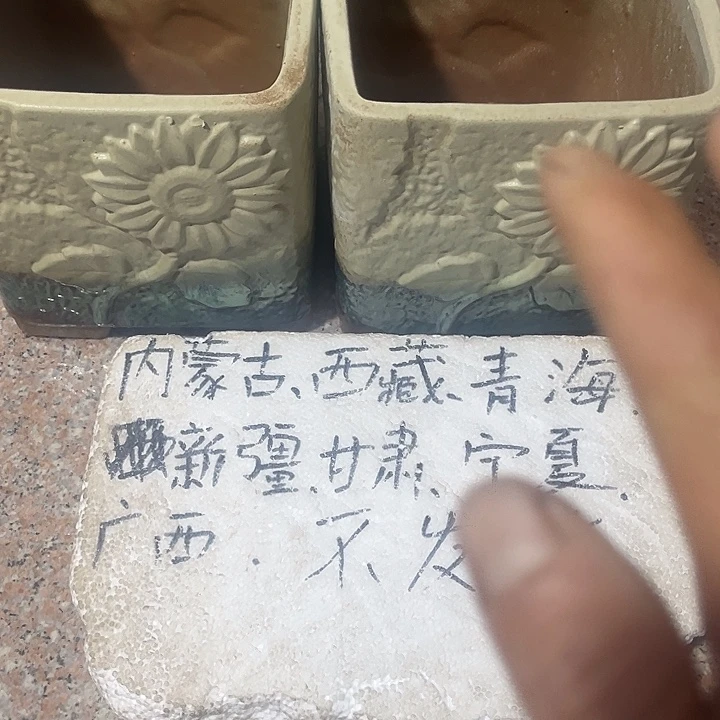 内蒙古、西藏、青海、
新疆、甘肃、宁夏、
广西、不发